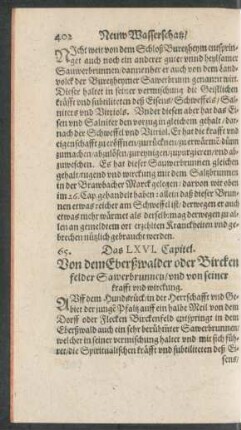 402 Neuw Wasserschatz/
NIcht weit von dem Schloß Buretzheym entsprin-
get auch noch ein anderer guter vnnd heylsamer
Sauwerbrunnen/ dannenher er auch von dem Land-
volck der Buretzheymer Sawerbrunn genannt wirt.
Dieser haltet in seiner vermischung die Geistlichen
kräfft vnd subtiliteten deß Eisens/ Schweffels/ Sal-
niters vnd Vitriols. Vnder diesen aber hat das Ei-
sen vnd Salniter den vorzug in gleichem gehalt/ dar-
nach der Schweffel vnd Vitriol. Er hat die krafft vnd
eigenschafft zu eröffnen/ zu trücknen/ zu erwärmen/ dünn
zumachen/ abzulösen/ zu reynigen/ zu purgieren/ vnd ab-
zuweschen. Es hat dieser Sauwerbrunnen gleichen
gehalt/ tugend vnd würckung mit dem Saltzbrunnen
in der Braubacher Marck gelegen: darvon wir oben
im 26. Cap. gehandelt haben: allein daß dieser Brun-
nen etwas reicher am Schweffel ist: derwegen er auch
etwas mehr wärmet als derselb: mag derwegen zu al-
len an gemeldtem ort erzehlten Kranckheiten vnd ge-
brechen nützlich gebraucht werden.
65. Das LXVI. Capitel.
Von dem Eberßwalder oder Bircken
felder Sawerbrunnen/ vnd von seiner
krafft vnd wirckung.
AVff dem Hundsrück in die Herrschafft vnd Ge-
biet der jungē Pfaltz auff ein halbe Meil von dem
Dorff oder Flecken Birckenfeld entspringt in dem
Eberßwald auch ein sehr berühmter Sawerbrunnen:
welcher in seiner vermischung haltet vnd mit sich füh-
ret/ die Spiritualischen kräfft vnd subtiliteten deß Ei-
sens/